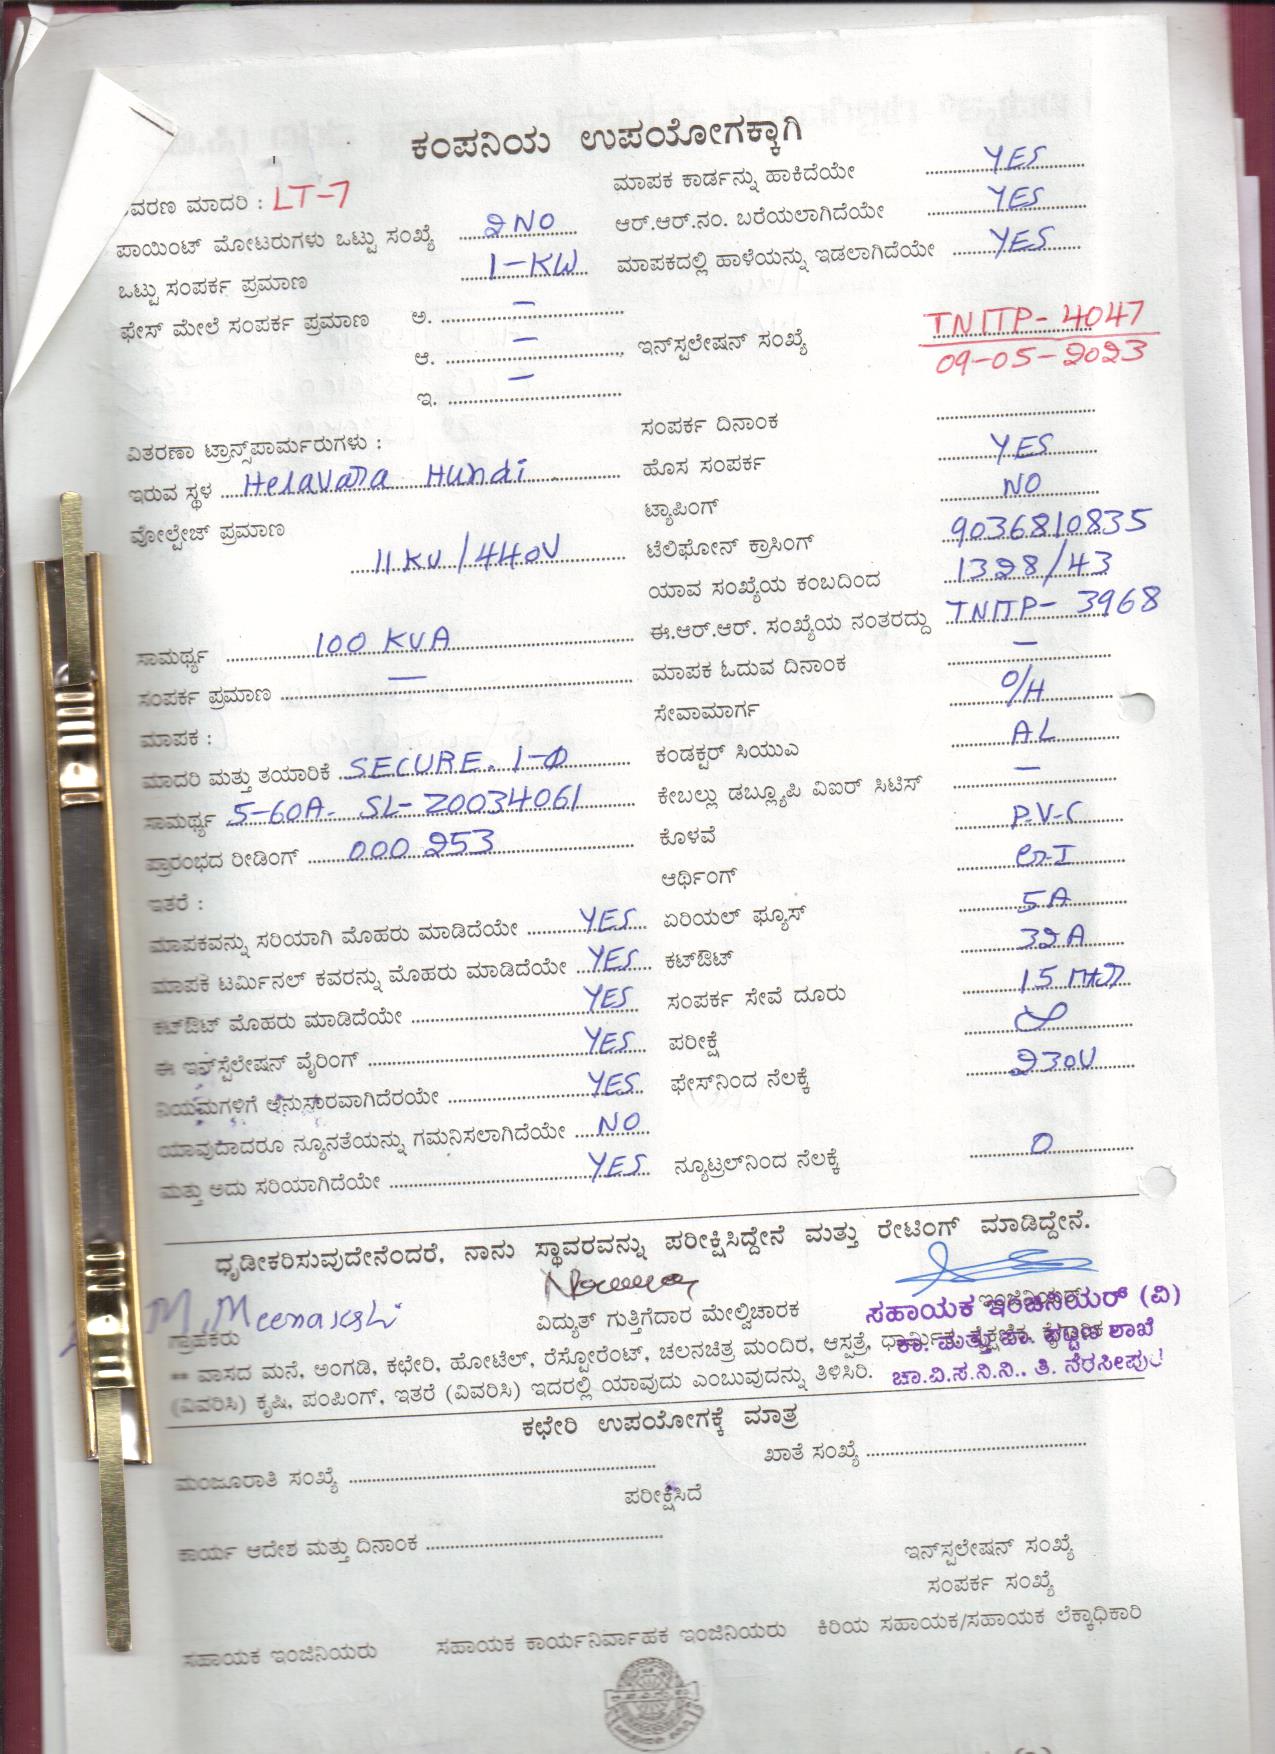 ಕಂಪನಿಯ ಉಪಯೋಗಕ್ಕಾಗಿ
ವಿವರಣ ಮಾದರಿ : LT-7
ಪಾಯಿಂಟ್ ಮೋಟರುಗಳು ಒಟ್ಟು ಸಂಖ್ಯೆ 2NO
ಒಟ್ಟು ಸಂಪರ್ಕ ಪ್ರಮಾಣ 1-KW
ಫೇಸ್ ಮೇಲೆ ಸಂಪರ್ಕ ಪ್ರಮಾಣ ಅ. –
ಆ. –
ಇ. –
ಮಾಪಕ ಕಾರ್ಡನ್ನು ಹಾಕಿದೆಯೇ YES
ಆರ್.ಆರ್.ನಂ. ಬರೆಯಲಾಗಿದೆಯೇ YES
ಮಾಪಕದಲ್ಲಿ ಹಾಳೆಯನ್ನು ಇಡಲಾಗಿದೆಯೇ YES
ಇನ್‌ಸ್ಪಲೇಷನ್ ಸಂಖ್ಯೆ TNITP-4047
09-05-2023
ವಿತರಣಾ ಟ್ರಾನ್ಸ್‌ಪಾರ್ಮರುಗಳು :
ಇರುವ ಸ್ಥಳ Helavara Hundi
ವೋಲ್ಟೇಜ್ ಪ್ರಮಾಣ
11 KV / 440V
ಸಾಮರ್ಥ್ಯ 100 KVA
ಸಂಪರ್ಕ ಪ್ರಮಾಣ –
ಮಾಪಕ :
ಮಾದರಿ ಮತ್ತು ತಯಾರಿಕೆ SECURE. 1-Φ
ಸಾಮರ್ಥ್ಯ 5-60A. SL- Z0034061
ಪ್ರಾರಂಭದ ರೀಡಿಂಗ್ 000253
ಇತರೆ :
ಮಾಪಕವನ್ನು ಸರಿಯಾಗಿ ಮೊಹರು ಮಾಡಿದೆಯೇ YES
ಮಾಪಕ ಟರ್ಮಿನಲ್ ಕವರನ್ನು ಮೊಹರು ಮಾಡಿದೆಯೇ YES
ಕಟ್‌ಔಟ್ ಮೊಹರು ಮಾಡಿದೆಯೇ YES
ಈ ಇನ್‌ಸ್ಪೆಲೇಷನ್ ವೈರಿಂಗ್ YES
ನಿಯಮಗಳಿಗೆ ಅನುಸಾರವಾಗಿದೆರಯೇ YES
ಯಾವುದಾದರೂ ನ್ಯೂನತೆಯನ್ನು ಗಮನಿಸಲಾಗಿದೆಯೇ NO
ಮತ್ತು ಅದು ಸರಿಯಾಗಿದೆಯೇ YES
ಸಂಪರ್ಕ ದಿನಾಂಕ
ಹೊಸ ಸಂಪರ್ಕ YES
ಟ್ಯಾಪಿಂಗ್ NO
ಟೆಲಿಫೋನ್ ಕ್ರಾಸಿಂಗ್ 9036810835
ಯಾವ ಸಂಖ್ಯೆಯ ಕಂಬದಿಂದ 1328/43
ಈ.ಆರ್.ಆರ್. ಸಂಖ್ಯೆಯ ನಂತರದ್ದು TNITP- 3968
ಮಾಪಕ ಓದುವ ದಿನಾಂಕ –
ಸೇವಾಮಾರ್ಗ O/H
ಕಂಡಕ್ಟರ್ ಸಿಯುಎ AL
ಕೇಬಲ್ಲು ಡಬ್ಲ್ಯೂಪಿ ವಿಐರ್ ಸಿಟಿಸ್ –
ಕೊಳವೆ P.V.C
ಆರ್ಥಿಂಗ್ G.I
ಏರಿಯಲ್ ಫ್ಯೂಸ್ 5A
ಕಟ್‌ಔಟ್ 32A
ಸಂಪರ್ಕ ಸೇವೆ ದೂರು 15 Mtr
ಪರೀಕ್ಷೆ
ಫೇಸ್‌ನಿಂದ ನೆಲಕ್ಕೆ 230V
ನ್ಯೂಟ್ರಲ್‌ನಿಂದ ನೆಲಕ್ಕೆ 0
ಧೃಡೀಕರಿಸುವುದೇನೆಂದರೆ, ನಾನು ಸ್ಥಾವರವನ್ನು ಪರೀಕ್ಷಿಸಿದ್ದೇನೆ ಮತ್ತು ರೇಟಿಂಗ್ ಮಾಡಿದ್ದೇನೆ.
M. Meenakshi
ಗ್ರಾಹಕರು
ವಿದ್ಯುತ್ ಗುತ್ತಿಗೆದಾರ ಮೇಲ್ವಿಚಾರಕ
ಇಂಜಿನಿಯರ್
ಸಹಾಯಕ ಇಂಜಿನಿಯರ್ (ವಿ)
ಶಾಖೆ
ಚಾ.ವಿ.ಸ.ನಿ.ನಿ., ತಿ. ನರಸೀಪುರ
** ವಾಸದ ಮನೆ, ಅಂಗಡಿ, ಕಛೇರಿ, ಹೋಟೆಲ್, ರೆಸ್ಟೋರೆಂಟ್, ಚಲನಚಿತ್ರ ಮಂದಿರ, ಆಸ್ಪತ್ರೆ,
(ವಿವರಿಸಿ) ಕೃಷಿ, ಪಂಪಿಂಗ್, ಇತರೆ (ವಿವರಿಸಿ) ಇದರಲ್ಲಿ ಯಾವುದು ಎಂಬುವುದನ್ನು ತಿಳಿಸಿರಿ.
ಕಛೇರಿ ಉಪಯೋಗಕ್ಕೆ ಮಾತ್ರ
ಮಂಜೂರಾತಿ ಸಂಖ್ಯೆ
ಖಾತೆ ಸಂಖ್ಯೆ
ಪರೀಕ್ಷಿಸಿದೆ
ಕಾರ್ಯ ಆದೇಶ ಮತ್ತು ದಿನಾಂಕ
ಇನ್‌ಸ್ಪಲೇಷನ್ ಸಂಖ್ಯೆ
ಸಂಪರ್ಕ ಸಂಖ್ಯೆ
ಸಹಾಯಕ ಇಂಜಿನಿಯರು ಸಹಾಯಕ ಕಾರ್ಯನಿರ್ವಾಹಕ ಇಂಜಿನಿಯರು ಕಿರಿಯ ಸಹಾಯಕ/ಸಹಾಯಕ ಲೆಕ್ಕಾಧಿಕಾರಿ